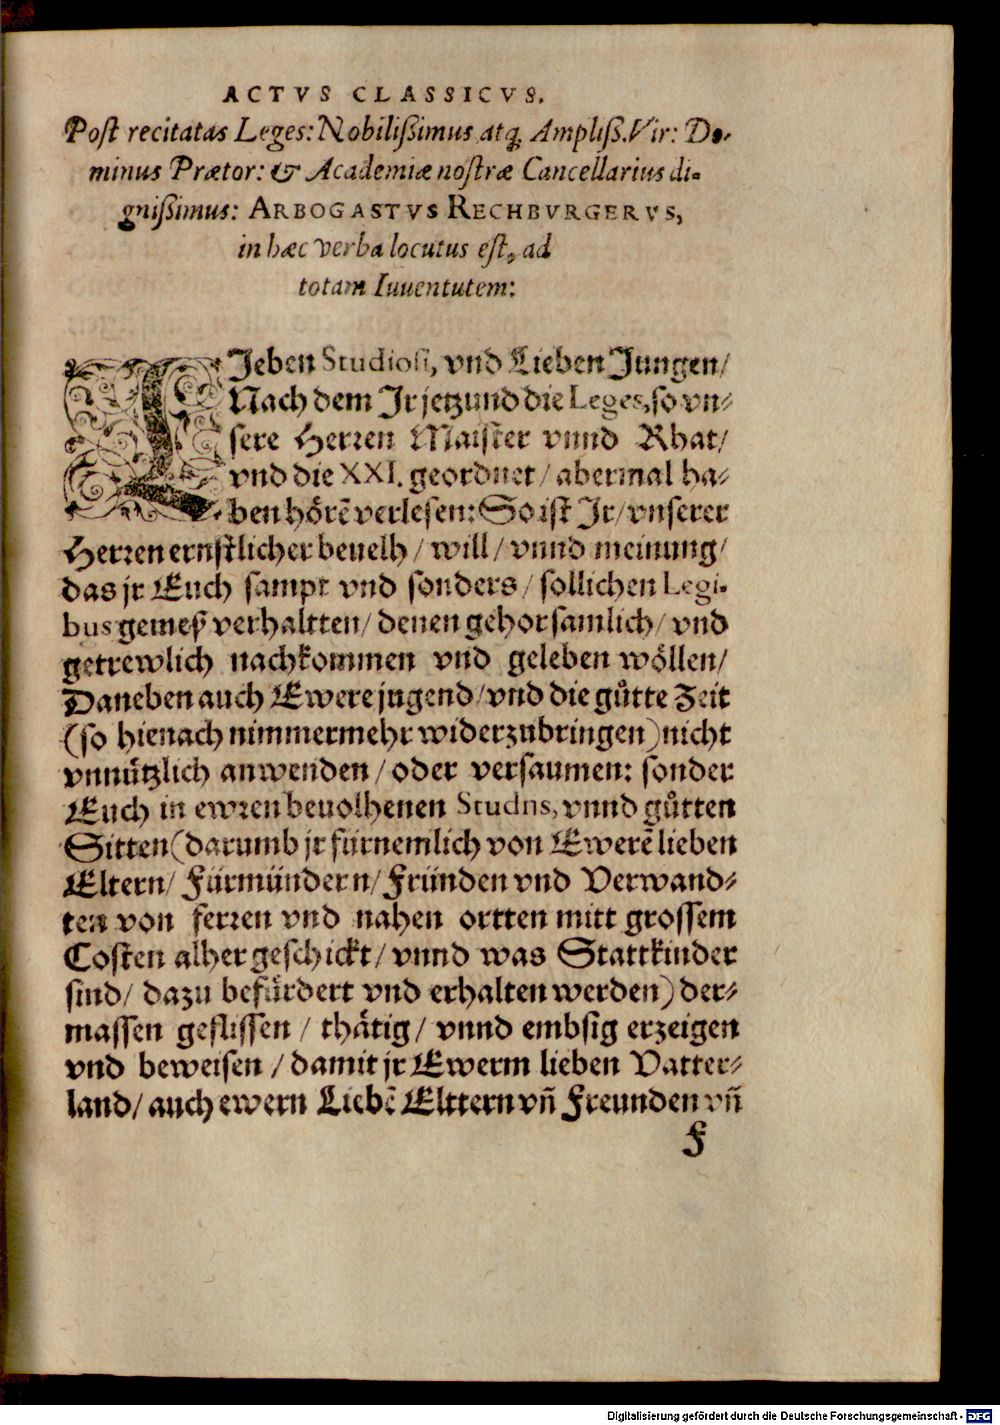 ACTVS CLASSICVS.
Post recitatas Leges: Nobilißimus atq; Ampliß. Vir: Do-
minus Prætor: & Academiæ nostræ Cancellarius di-
gnißimus: ARBOGASTVS RECHBVRGERVS,
in hæc verba locutus est, ad
totam Iuuentutem:
LIeben Studiosi, vnd Lieben Jungen/
Nach dem Jr jetzund die Leges, so vn-
sere Herren Maister vnnd Rhat/
vnd die XXI. geordnet/ abermal ha-
ben hörẽ verlesen: So ist Jr/ vnserer
Herren ernstlicher beuelh/ will/ vnnd meinung/
das jr Euch sampt vnd sonders/ sollichen Legi-
bus gemeß verhaltten/ denen gehorsamlich/ vnd
getrewlich nachkommen vnd geleben wöllen/
Daneben auch Ewere jugend/ vnd die gůtte Zeit
(so hienach nimmermehr widerzubringen) nicht
vnnützlich anwenden/ oder versaumen: sonder
Euch in ewren beuolhenen Studijs, vnnd gůtten
Sitten (darumb jr fürnemlich von Ewerẽ lieben
Eltern/ Fürmündern/ Fründen vnd Verwand-
ten von ferren vnd nahen ortten mitt grossem
Costen alher geschickt/ vnnd was Stattkinder
sind/ dazu befürdert vnd erhalten werden) der-
massen geflissen/ thätig/ vnnd embsig erzeigen
vnd beweisen/ damit jr Ewerm lieben Vatter-
land/ auch ewern Liebẽ Elttern vñ Freunden vñ
F
Digitalisierung gefördert durch die Deutsche Forschungsgemeinschaft - DFG